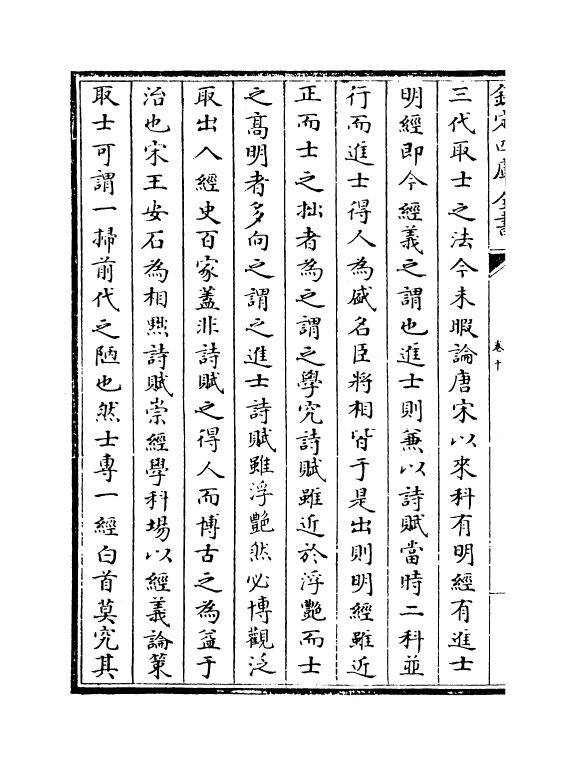 欽定四庫全書
卷十
三代取士之法今未暇論唐宋以來科有明經有進士
明經即今經義之謂也進士則兼以詩賦當時二科並
行而進士得人為盛名臣將相皆于是出則明經雖近
正而士之拙者為之謂之學究詩賦雖近於浮艷而士
之髙明者多向之謂之進士詩賦雖浮艷然必博觀泛
取出入經史百家蓋非詩賦之得人而博古之為益于
治也宋王安石為相黜詩賦崇經學科場以經義論策
取士可謂一掃前代之陋也然士專一經白首莫究其